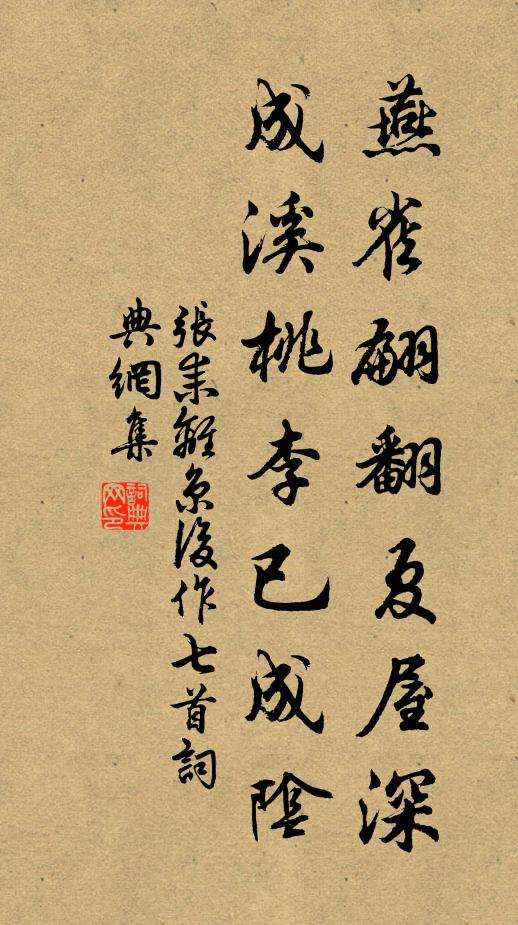 燕雀翩翻夏屋深
成溪桃李已成陰
張耒離京後作七首詞
典網集
詞典网印